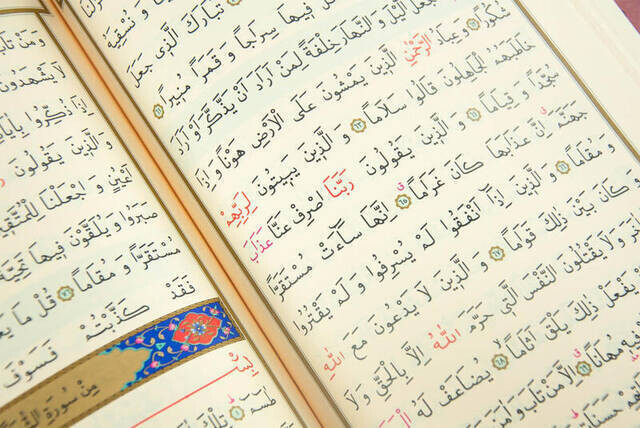 تَبَارَكَ الَّذِي جَعَلَ
فِيهَا سِرَاجًا وَ قَمَرًا مُنِيرًا ﴿٦١﴾
جَعَلَ الَّيْلَ وَ النَّهَارَ خِلْفَةً لِمَنْ اَرَادَ اَنْ يَذَّكَّرَ اَوْ اَرَادَ
شُكُورًا ﴿٦٢﴾ وَ عِبَادُ الرَّحْمٰنِ الَّذِينَ يَمْشُونَ عَلَى الْاَرْضِ هَوْنًا وَ اِذَا
خَاطَبَهُمُ الْجَاهِلُونَ قَالُوا سَلَامًا ﴿٦٣﴾ وَ الَّذِينَ يَبِيتُونَ لِرَبِّهِمْ
سُجَّدًا وَ قِيَامًا ﴿٦٤﴾ وَ الَّذِينَ يَقُولُونَ رَبَّنَا اصْرِفْ عَنَّا عَذَابَ
جَهَنَّمَ اِنَّ عَذَابَهَا كَانَ غَرَامًا ﴿٦٥﴾ اِنَّهَا سَآءَتْ مُسْتَقَرًّا
وَ مُقَامًا ﴿٦٦﴾ وَ الَّذِينَ اِذَآ اَنْفَقُوا لَمْ يُسْرِفُوا وَ لَمْ يَقْتُرُوا
وَ كَانَ بَيْنَ ذٰلِكَ قَوَامًا ﴿٦٧﴾ وَ الَّذِينَ لَا يَدْعُونَ مَعَ اللّٰهِ
وَ لَا يَقْتُلُونَ النَّفْسَ الَّتِي حَرَّمَ اللّٰهُ اِلَّا بِالْحَقِّ وَ لَا
يَفْعَلْ ذٰلِكَ يَلْقَ اَثَامًا ﴿٦٨﴾ يُضَاعَفْ لَهُ
فِيهِ مُهَانًا ﴿٦٩﴾ اِلَّا مَنْ تَابَ وَ اٰمَنَ
وَ مَنْ تَابَ
لَا يَشْهَدُونَ
اِذَا ذُكِّرُوا
وَ الَّذِينَ يَقُولُونَ
اَعْيُنٍ وَ اجْعَلْنَا لِلْمُتَّقِينَ
صَبَرُوا وَ يُلَقَّوْنَ فِيهَا تَحِيَّةً
مُسْتَقَرًّا وَ مُقَامًا ﴿٧٦﴾ قُلْ مَا
فَقَدْ كَذَّبْتُمْ فَسَوْفَ
مِنْ سُورَةِ
بِسْمِ
طٰسٓمٓ ﴿١﴾ تِلْكَ